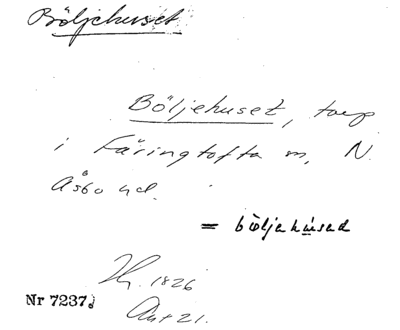 Böljehuset
Böljehuset, torp
i Färingtofta sn, N.
Åsbo hd.
= böljahúsad
1826
Nr 7237.
21.